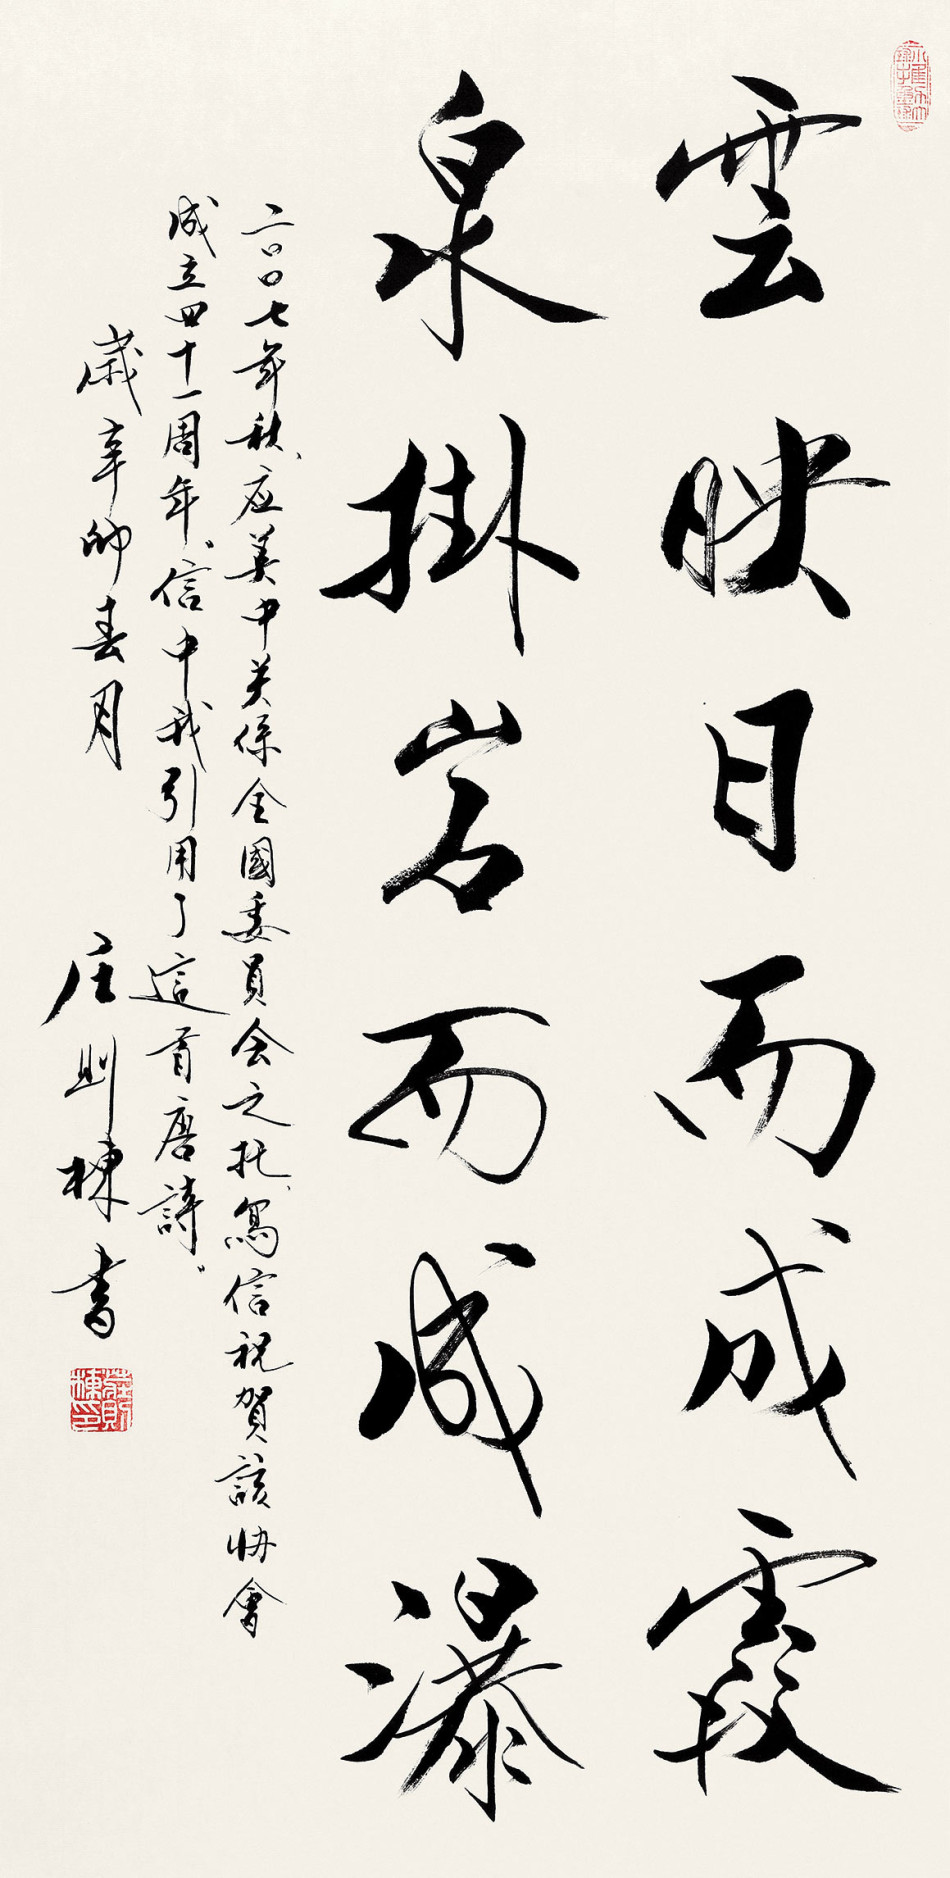 雲映日而成霞
泉掛岩而成瀑
二〇〇七年秋、应美中关係全國委員会之托、寫信祝賀該协會
成立四十一周年。信中我引用了這首唐詩。
歲辛卯春月
庄则棟书
莊則棟印